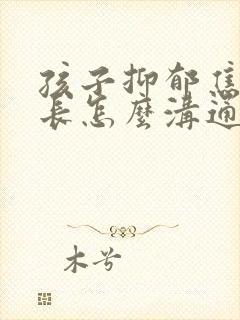 孩子抑郁焦
長怎麼溝通
木兮